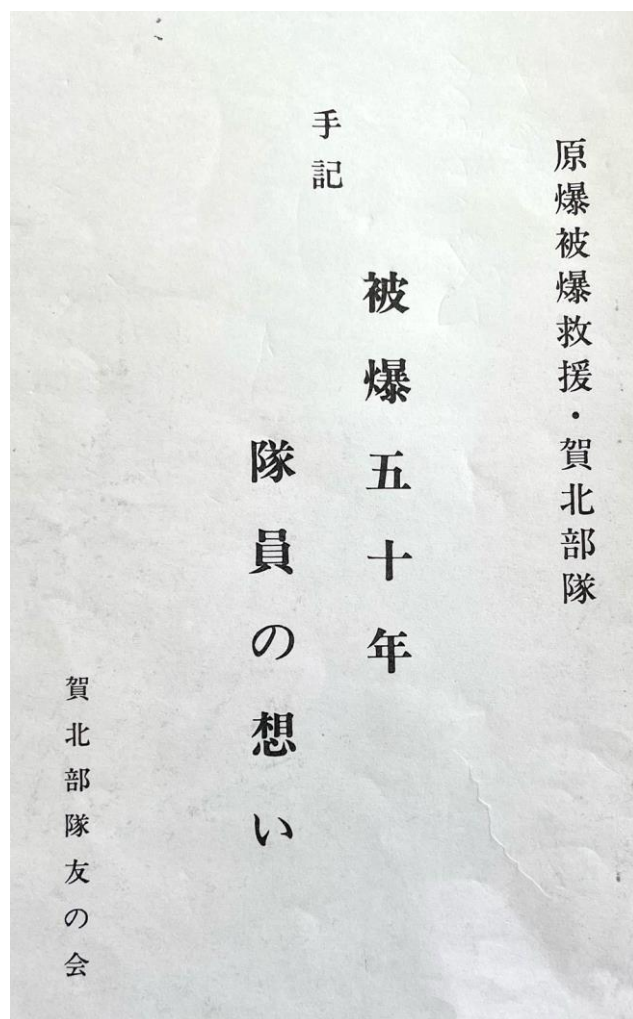 原爆被爆救援・賀北部隊
被爆五十年
手記
隊員の想い
賀北部隊友の会